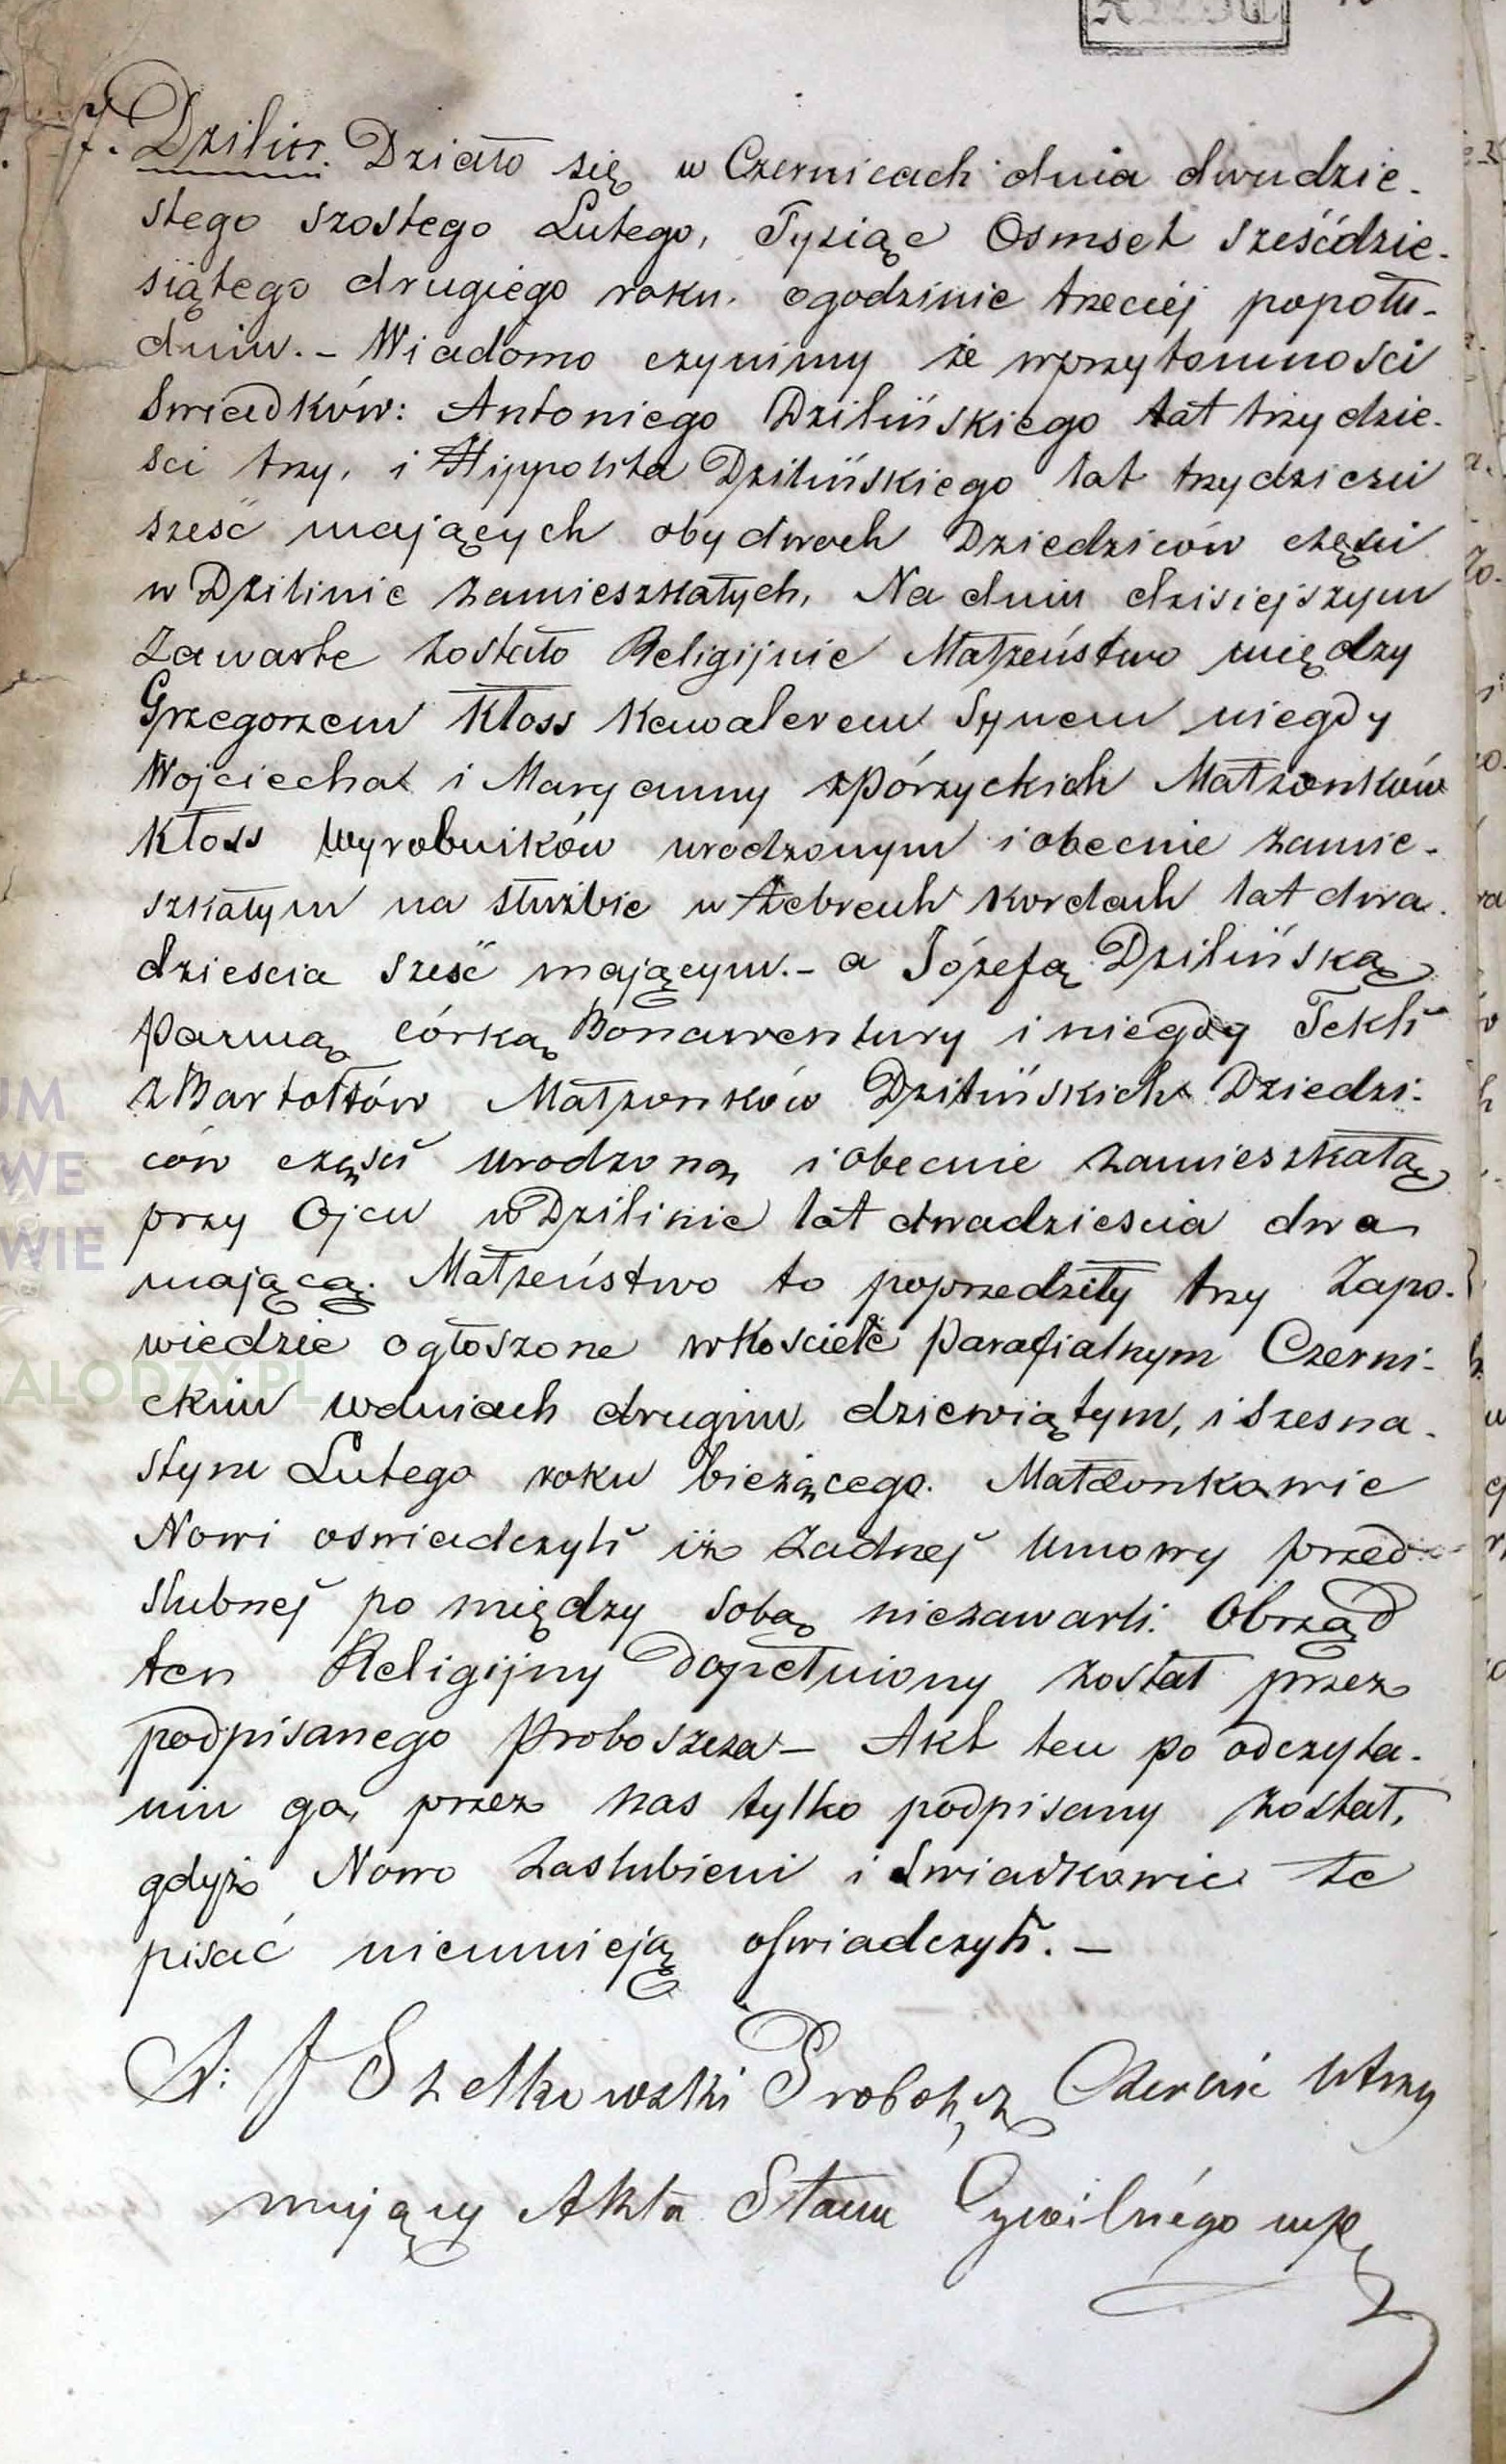 7. Dzilin. Działo się w Czernicach dnia dwudzie-
stego szostego Lutego, Tysiąc Osmset sześćdzie-
siątego drugiego roku. ogodzinie trzeciej popołu-
dniu. – Wiadomo czynimy że wprzytomności
Swiadków: Antoniego Dzilińskiego lat trzydzie-
sci trzy, i Hippolita Dzilińskiego lat trzydzieści
sześć mających obydwoch Dziedziców części
w Dzilinie zamieszkałych, Na dniu dzisiejszym
Zawarte zostało Religijnie Małżeństwo między
Grzegorzem Kłoss Kawalerem Synem niegdy
Wojciecha i Maryanny zPórzyckich Małżonków
Kłoss Wyrobników urodzonym i obecnie zamie-
szkałym na służbie w Żebrach Kordach lat dwa-
dziescia sześć mającym. – a Józefą Dzilińską
Panną córką Bonawentury i niegdy Tekli
z Bartołtów Małżonków Dzilińskich Dziedzi-
ców części urodzoną i obecnie zamieszkałą
przy Ojcu w Dzilinie lat dwadziescia dwa
mającą. Małżeństwo to poprzedziły trzy Zapo-
wiedzie ogłoszone wKościele Parafialnym Czerni-
ckim wdniach drugim, dziewiątym, i szesna-
stym Lutego roku bieżącego. Małżonkowie
Nowi oswiadczyli iż Żadnej Umowy przed-
slubnej po między sobą niezawarli. Obrząd
ten Religijny dopełniony został przez
podpisanego Proboszcza – Akt ten po odczyta-
niu go, przez nas tylko podpisany został,
gdyż Nowo Zaslubieni i Swiadkowie te
pisać nieumieją oświadczyli. –
X: J Szelkowski Proboszcz Czernic Utrzy
mujący Akta Stanu Cywilnégo mp
UM
WE
WIE
ALODZY.PL